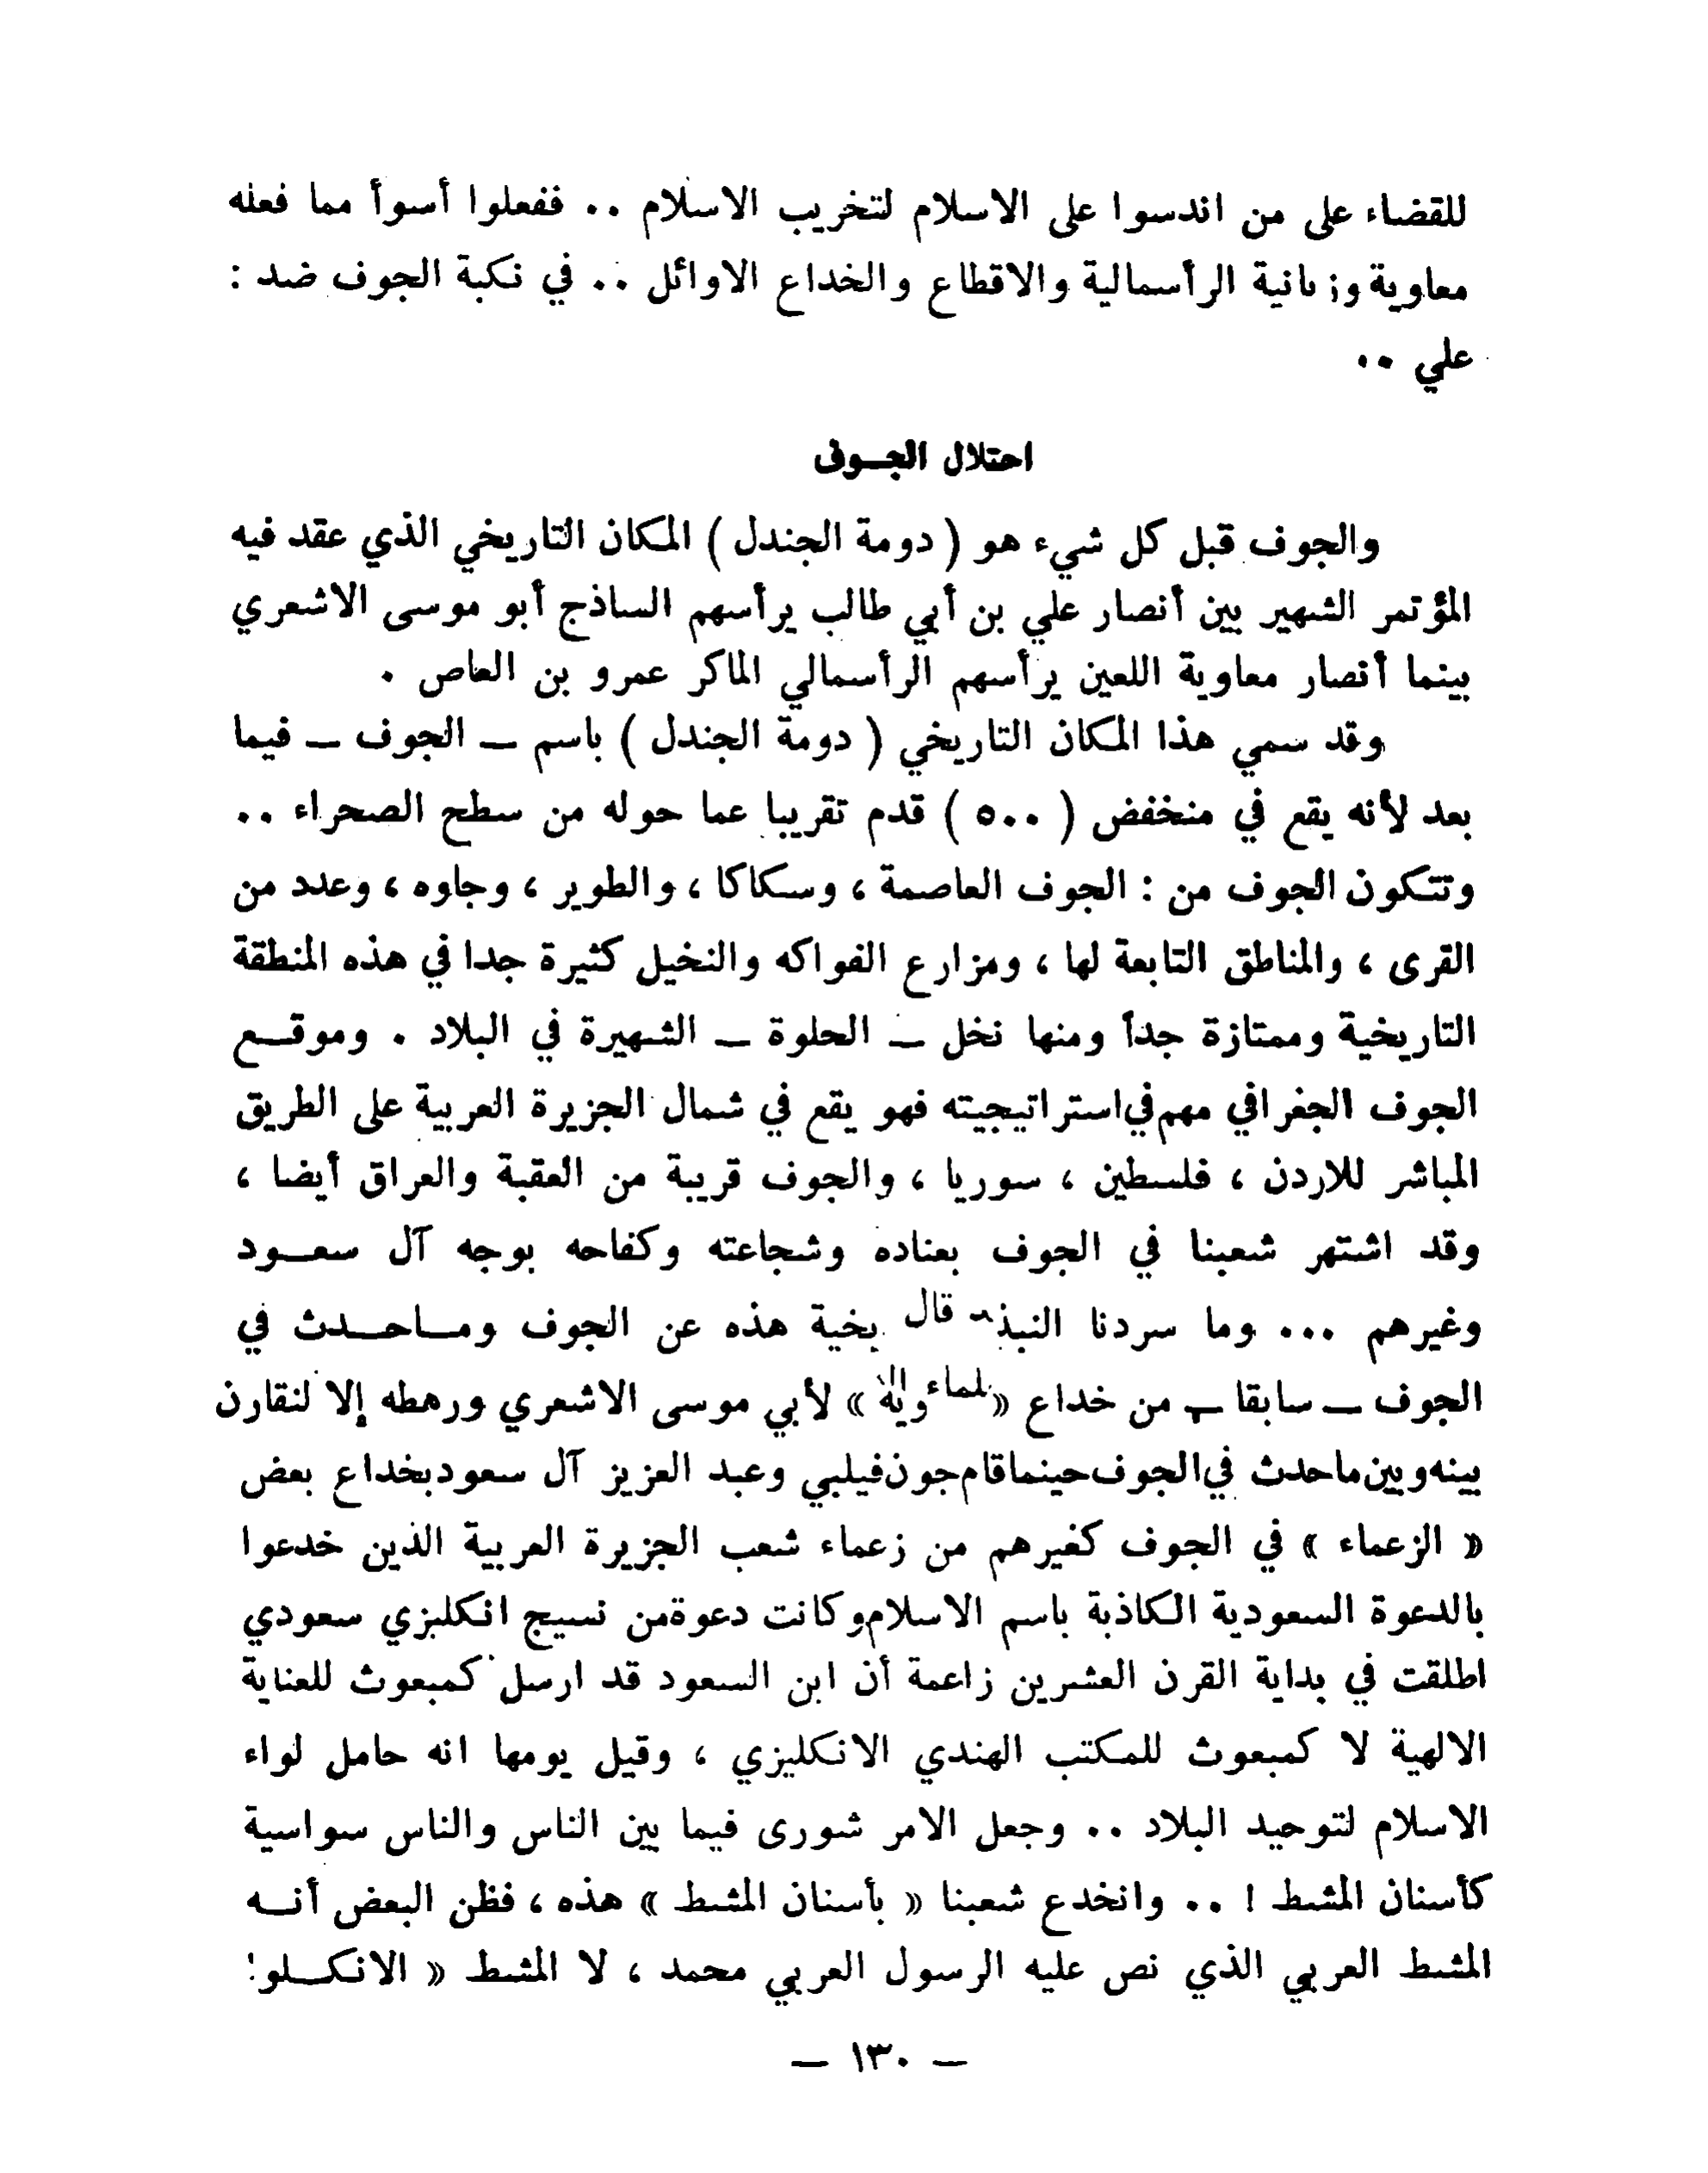 للقضاء على من اندسوا على الاسلام لتخريب الاسلام .. ففعلوا أسوأ مما فعله
معاوية وزبانية الرأسمالية والاقطاع والخداع الاوائل .. في نكبة الجوف ضد :
علي ..
احتلال الجـوف
والجوف قبل كل شيء هو ( دومة الجندل ) المكان التاريخي الذي عقد فيه
المؤتمر الشهير بين أنصار علي بن أبي طالب يرأسهم الساذج أبو موسى الاشعري
بينما أنصار معاوية اللعين يرأسهم الرأسمالي الماكر عمرو بن العاص .
وقد سمي هذا المكان التاريخي ( دومة الجندل ) باسم ــ الجوف ــ فيما
بعد لأنه يقع في منخفض ( ٥٠٠ ) قدم تقريبا عما حوله من سطح الصحراء ..
وتتكون الجوف من : الجوف العاصمة ، وسكاكا ، والطوير ، وجاوه ، وعدد من
القرى ، والمناطق التابعة لها ، ومزارع الفواكه والنخيل كثيرة جدا في هذه المنطقة
التاريخية وممتازة جداً ومنها نخل ــ الحلوة ــ الشهيرة في البلاد . وموقـع
الجوف الجغرافي مهم في استراتيجيته فهو يقع في شمال الجزيرة العربية على الطريق
المباشر للاردن ، فلسطين ، سوريا ، والجوف قريبة من العقبة والعراق أيضا ،
وقد اشتهر شعبنا في الجوف بعناده وشجاعته وكفاحه بوجه آل سعـود
وغيرهم ... وما سردنا قال هذه عن الجوف ومـاحـدث في
الجوف ــ سابقا ــ من خداع « » لأبي موسى الاشعري ورهطه إلا لنقارن
بينه وبين ماحدث في الجوف حينما قام جون فيلبي وعبد العزيز آل سعود بخداع بعض
« الزعماء » في الجوف كغيرهم من زعماء شعب الجزيرة العربية الذين خدعوا
بالدعوة السعودية الكاذبة باسم الاسلام وكانت دعوة من نسيج انكليزي سعودي
اطلقت في بداية القرن العشرين زاعمة أن ابن السعود قد ارسل كمبعوث للعناية
الالهية لا كمبعوث للمكتب الهندي الانكليزي ، وقيل يومها انه حامل لواء
الاسلام لتوحيد البلاد .. وجعل الامر شورى فيما بين الناس والناس سواسية
كأسنان المشط ! .. وانخدع شعبنا « بأسنان المشط » هذه ، فظن البعض أنـه
المشط العربي الذي نص عليه الرسول العربي محمد ، لا المشط « الانكـلو !
ــ ١٣٠ ــ